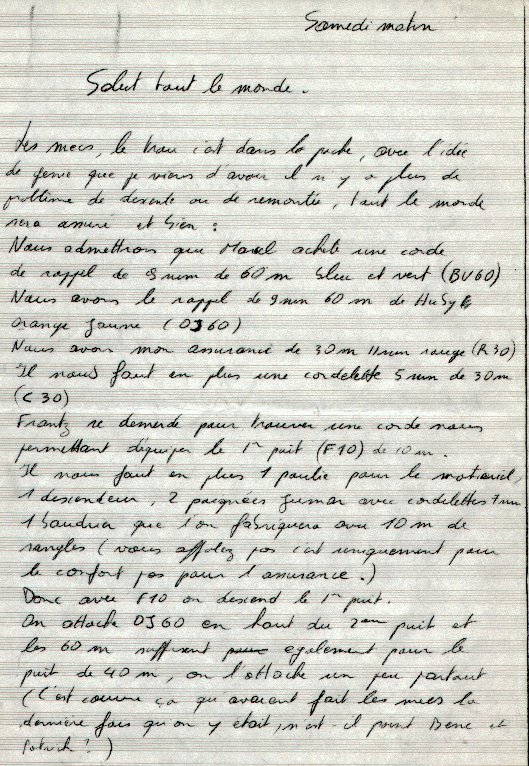 Samedi matin
Salut tout le monde.
Les mecs, le trou c'est dans la poche, avec l'idée
de genie que je viens d'avoir il n'y a plus de
problème de descente ou de remontée, tout le monde
sera assuré et bien :
Nous admettrons que Marcel achète une corde
de rappel de 9 mm de 60 m bleu et vert (BV60)
Nous avons le rappel de 9 mm 60 m de
orange jaune (OJ60)
Nous avons mon assurance de 30 m 11 mm rouge (R30)
Il nous faut en plus une cordelette 5 mm de 30 m
(C30)
Frantz se demerde pour trouver une corde nous
permettant d'équiper le 1er puit (F10) de 10 m.
Il nous faut en plus 1 poulie pour le materiel,
1 descendeur, 2 poignées Jumar avec cordelettes 7 mm
1 baudrier que l'on fabriquera avec 10 m de
sangles (vous affolez pas c'est uniquement pour
le confort pas pour l'assurance.)
Donc avec F10 on descend le 1er puit.
On attache OJ60 en haut du 2eme puit et
les 60 m suffisent egalement pour le
puit de 40 m, on l'attache un peu partout
(C'est comme ça qu'avaient fait les mecs la
dernière fois qu'on y était, n'est-il point Bene et
Patrick ?)